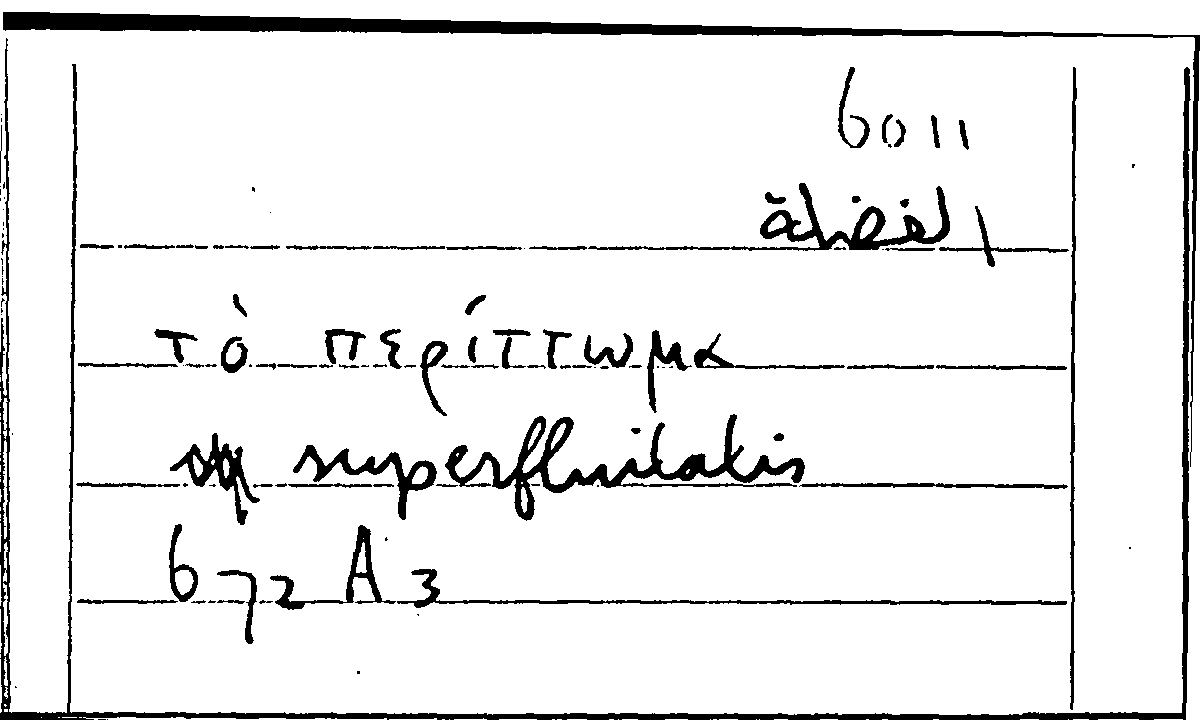 6011
الفضلة
τὸ περίττωμα
superfluitatis
672 A 3